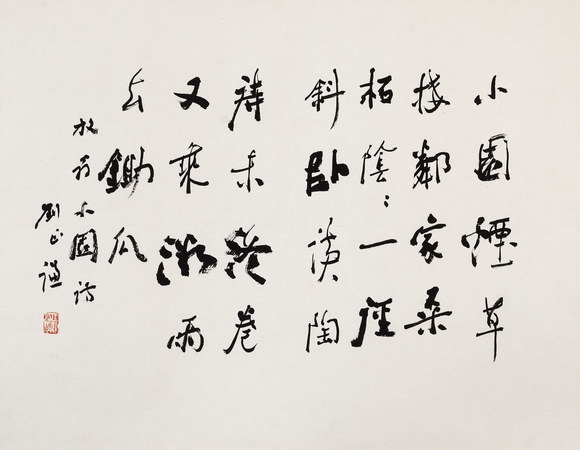 小園煙草
接鄰家桑
柘陰〻一徑
斜卧讀陶
詩未終卷
又乘微雨
去鋤瓜
放翁小園詩
劉正謙